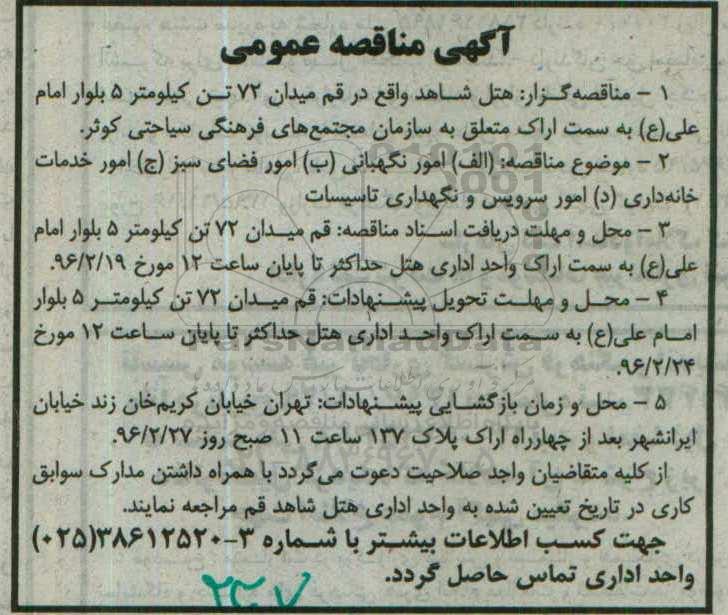 آگهی مناقصه عمومی
۱ – مناقصه‌گزار: هتل شاهد واقع در قم میدان ۷۲ تن کیلومتر ۵ بلوار امام
علی(ع) به سمت اراک متعلق به سازمان مجتمع‌های فرهنگی سیاحتی کوثر.
۲ – موضوع مناقصه: (الف) امور نگهبانی (ب) امور فضای سبز (ج) امور خدمات
خانه‌داری (د) امور سرویس و نگهداری تاسیسات
۳ – محل و مهلت دریافت اسناد مناقصه: قم میدان ۷۲ تن کیلومتر ۵ بلوار امام
علی(ع) به سمت اراک واحد اداری هتل حداکثر تا پایان ساعت ۱۲ مورخ ۹۶/۲/۱۹.
۴ – محل و مهلت تحویل پیشنهادات: قم میدان ۷۲ تن کیلومتر ۵ بلوار
امام علی(ع) به سمت اراک واحد اداری هتل حداکثر تا پایان ساعت ۱۲ مورخ
۹۶/۲/۲۴.
۵ – محل و زمان بازگشایی پیشنهادات: تهران خیابان کریم‌خان زند خیابان
ایرانشهر بعد از چهارراه اراک پلاک ۱۳۷ ساعت ۱۱ صبح روز ۹۶/۲/۲۷.
از کلیه متقاضیان واجد صلاحیت دعوت می‌گردد با همراه داشتن مدارک سوابق
کاری در تاریخ تعیین شده به واحد اداری هتل شاهد قم مراجعه نمایند.
جهت کسب اطلاعات بیشتر با شماره ۳–۳۸۶۱۲۵۲۰(۰۲۵)
واحد اداری تماس حاصل گردد.